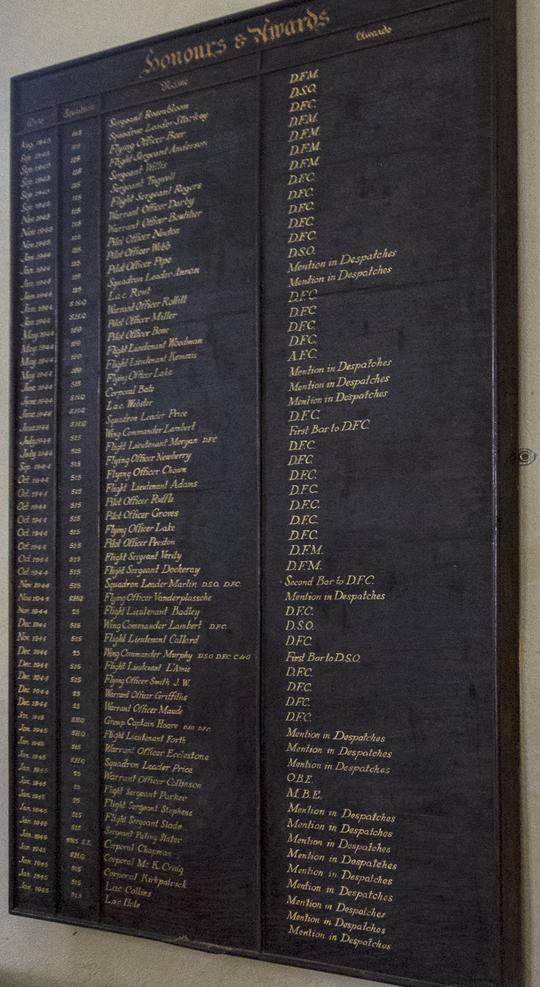 Honours & Awards
Date Squadron Name Awards
Aug. 1943 Sergeant Rosenbloom D.F.M.
Sep. 1943 Squadron Leader Starkey D.S.O.
Sep. 1943 Flying Officer Beer D.F.C.
Sep. 1943 Flight Sergeant Anderson D.F.M.
Sep. 1943 Sergeant Willis D.F.M.
Sergeant Tugwell D.F.M.
Flight Sergeant Rogers D.F.M.
Warrant Officer Darby D.F.C.
Warrant Officer Boutilier D.F.C.
Pilot Officer Norton D.F.C.
Pilot Officer Webb D.F.C.
Pilot Officer Pipe D.F.C.
Squadron Leader Annan D.S.O.
L.a.c. Rout Mention in Despatches
Warrant Officer Mention in Despatches
Pilot Officer Miller D.F.C.
Pilot Officer Bone D.F.C.
Flight Lieutenant Woodman D.F.C.
Flight Lieutenant Kemmis D.F.C.
Flying Officer Lake A.F.C.
Corporal Bate Mention in Despatches
L.a.c. Webster Mention in Despatches
Squadron Leader Price Mention in Despatches
Wing Commander Lambert D.F.C.
515 Flight Lieutenant Morgan DFC First Bar to D.F.C.
515 Flying Officer Newberry D.F.C.
515 Flying Officer Chown D.F.C.
515 Flight Lieutenant Adams D.F.C.
Oct. 1944 515 Pilot Officer Ruffle D.F.C.
Oct. 1944 515 Pilot Officer Groves D.F.C.
Oct. 1944 515 Flying Officer Lake D.F.C.
Oct. 1944 515 Pilot Officer Preston D.F.C.
Oct. 1944 515 Flight Sergeant Verity D.F.M.
Oct. 1944 515 Flight Sergeant Dockeray D.F.M.
Nov. 1944 515 Squadron Leader Martin D.S.O. D.F.C. Second Bar to D.F.C.
Nov. 1944 Flying Officer Vanderplassche Mention in Despatches
Nov. 1944 23 Flight Lieutenant Badley D.F.C.
Dec. 1944 515 Wing Commander Lambert D.F.C. D.S.O.
Nov. 1944 515 Flight Lieutenant Callard D.F.C.
Dec. 1944 23 Wing Commander Murphy D.S.O. D.F.C. C de G First Bar to D.S.O.
Dec. 1944 515 Flight Lieutenant L'Amie D.F.C.
Dec. 1944 23 Flying Officer Smith J.W. D.F.C.
Dec. 1944 23 Warrant Officer Griffiths D.F.C.
Dec. 1944 23 Warrant Officer Maude D.F.C.
Jan. 1945 Group Captain Hoare DSO DFC Mention in Despatches
Jan. 1945 Flight Lieutenant Forth Mention in Despatches
Jan. 1945 Warrant Officer Ecclestone Mention in Despatches
Jan. 1945 Squadron Leader Price O.B.E.
Jan. 1945 23 Warrant Officer Collinson M.B.E.
Jan. 1945 23 Flight Sergeant Parker Mention in Despatches
Jan. 1945 23 Flight Sergeant Stephens Mention in Despatches
Jan. 1945 515 Flight Sergeant Slade Mention in Despatches
Jan. 1945 515 Sergeant Slater Mention in Despatches
Jan. 1945 Corporal Chapman Mention in Despatches
Jan. 1945 Corporal Mc K. Craig Mention in Despatches
Jan. 1945 Corporal Kirkpatrick Mention in Despatches
Jan. 1945 L.a.c. Collins Mention in Despatches
Jan. 1945 515 L.a.c. Hale Mention in Despatches